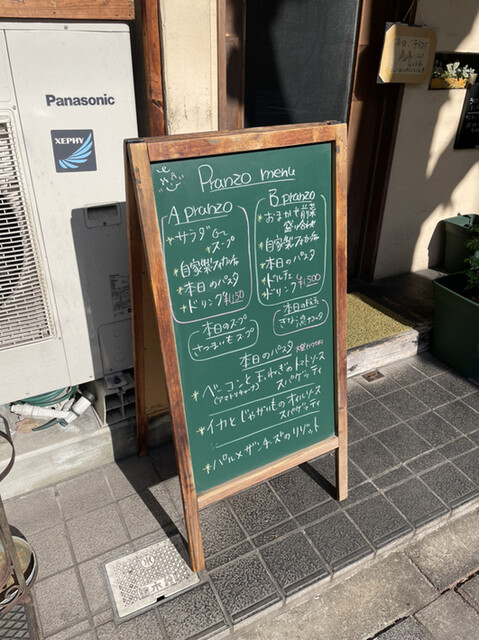 Panasonic
XEPHY
Pranzo menu
A pranzo
*サラダ or
スープ
*自家製フォカッチャ
*本日のパスタ
*ドリンク ¥1150
B pranzo
*おまかせ前菜
盛り合わせ
*自家製フォカッチャ
*本日のパスタ
*ドルチェ
*ドリンク ¥1500
本日のスープ
さつまいもスープ
本日の
本日のパスタ
*ベーコンと玉ねぎのトマトソース
(アマトリチャーナ) スパゲッティ
*イカとじゃがいものオイルソース
スパゲッティ
*パルメザンチーズのリゾット